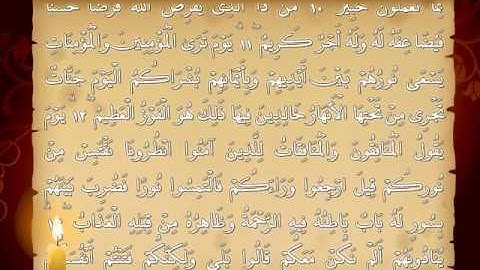 بِمَا تَعْمَلُونَ خَبِيرٌ ١٠ مَن ذَا الَّذِي يُقْرِضُ اللَّهَ قَرْضًا حَسَنًا
فَيُضَاعِفَهُ لَهُ وَلَهُ أَجْرٌ كَرِيمٌ ١١ يَوْمَ تَرَى الْمُؤْمِنِينَ وَالْمُؤْمِنَاتِ
يَسْعَى نُورُهُم بَيْنَ أَيْدِيهِمْ وَبِأَيْمَانِهِم بُشْرَاكُمُ الْيَوْمَ جَنَّاتٌ
تَجْرِي مِن تَحْتِهَا الْأَنْهَارُ خَالِدِينَ فِيهَا ذَلِكَ هُوَ الْفَوْزُ الْعَظِيمُ ١٢ يَوْمَ
يَقُولُ الْمُنَافِقُونَ وَالْمُنَافِقَاتُ لِلَّذِينَ آمَنُوا انظُرُونَا نَقْتَبِسْ مِن
نُّورِكُمْ قِيلَ ارْجِعُوا وَرَاءَكُمْ فَالْتَمِسُوا نُورًا فَضُرِبَ بَيْنَهُم
بِسُورٍ لَّهُ بَابٌ بَاطِنُهُ فِيهِ الرَّحْمَةُ وَظَاهِرُهُ مِن قِبَلِهِ الْعَذَابُ ١٣
يُنَادُونَهُمْ أَلَمْ نَكُن مَّعَكُمْ قَالُوا بَلَى وَلَكِنَّكُمْ فَتَنتُمْ أَنفُسَكُمْ